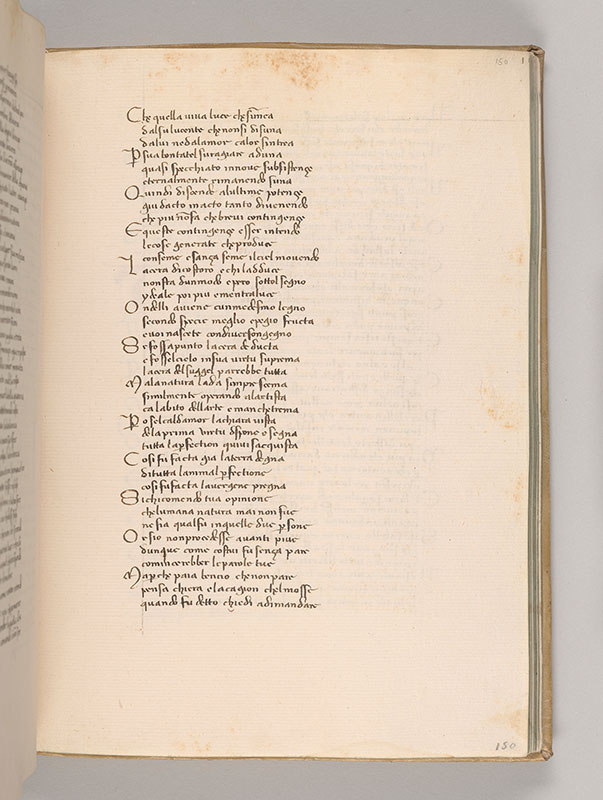 150 1
Che quella viva luce che simea
dalsulucente chenonsi disuna
dalui nedalamor calor sintrea
P sua bontatel suragiar aduna
quasi specchiato innove subsistenze
eternalmente rimanendo suna
Quindi discende alultime potenze
giu dacto inacto tanto divenendo
che piu nofa chebrevi contingenze
E queste contingenze esser intendo
lecose generate cheproduce
conseme e sanza seme ilciel movendo
L acera dicostoro e chiladduce
nonsta dunmodo e pero sottol segno
ydeale poi piu e mentraluce
Ondelli aviene cunmedesmo legno
secondo specie meglio e peggio fructa
e voi nascete condiverso ngegno
Se fossapunto lacera deducta
e fosselcielo insua virtu suprema
lacera del suggel parrebbe tutta
Malanatura lada sempre scema
similmente operando alartista
ca labito dellarte e man chetrema
Po selcaldamor lachiara vista
dela prima virtu dispone e segna
tutta lapfection quivi sacquista
Cosi fu facta gia laterra degna
ditutta lanimal pfectione
cosi fu facta lavergene pregna
Sichicomendo tua opinione
chelumana natura mai non fue
ne fia qualfu inquelle due psone
Or sio nonprocedesse avanti piue
dunque come costui fu senza pare
comincerebber leparole tue
Map che paia bencio chenonpare
pensa chiera e lacagion chelmosse
quando fu detto chiedi adimandare
150